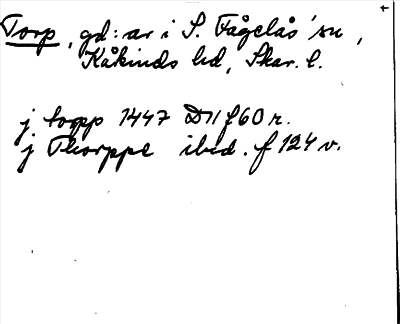 Torp, gd:ar i S. Fågelås' sn,
Kåkinds hd, Skar. l.
j torpp 1447 D11 f60 r.
j Thorppe ibid. f 124 v.